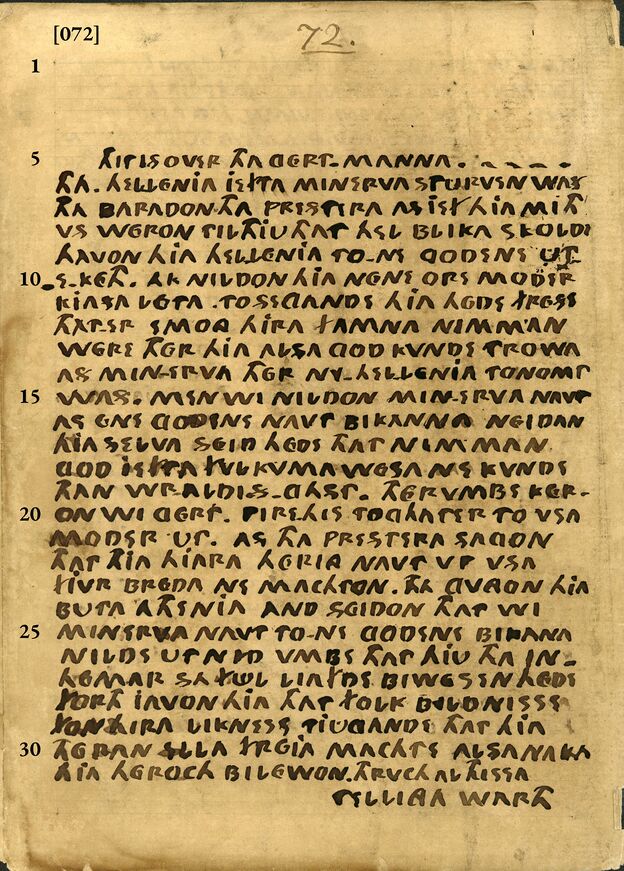 [072]
72.
1
5 THIT IS OVER THA GERT-MANNA.
THA. HELLENIA IEFTHA MINERVA STURVEN WAS
THA BARADON THA PRESTERA AS IEF HIA MITH
VS WERON TIL THIU THAT HEL BLIKA SKOLDE
HAVON HIA HELLENIA TO-NE GODENE UT
10 E-KETH. AK NILDON HIA NENE ORE MODER
KIASA LETA .TO SEGANDE HIA HEDE FRESE
THAT-ER EMONG HIRA FAMNA NIMMAN
WERE THER HIA ALSA GOD KVNDE TROWA
AS MIN-ERVA THER NY-HELLENIA TONOMT
15 WAS. MEN WI NILDON MIN-ERVA NAVT
AS ENE GODENE NAVT BIKANNA NEIDAN
HIA SELVA SEID HEDE THAT NIMMAN
GOD IEFTHA FULKUMA WESA NE KVNDE
THAN WR-ALDIS-GAST. THERVMBE KER-
20 ON WI GERT. PIRE.HIS TOGHATER TO VSA
MODER UT. AS THA PRESTERA SAGON
THAT HIA HIARA HERING NAVT VP VSA
FIVR BREDA NE MACHTON. THA GVNGON HIA
BUTA ATHENIA AND SEIDON THAT WI
25 MINERVA NAVT TO-NE GODENE BIKANA
NILDE UT NID VMBE THAT HIU THA IN-
HEMAR SA FUL LIAFDE BIWESEN HEDE
FORTH IAVON HIA THAT FOLK BILDNISSE
FON HIRA LIKNESE TIUGANDE THAT HIA
30 THERAN ELLA FREIA MACHTE ALSA NAKA
HIA HEROCH BILEWON. THRUCH AL THISSA
TELLINGA WARTH